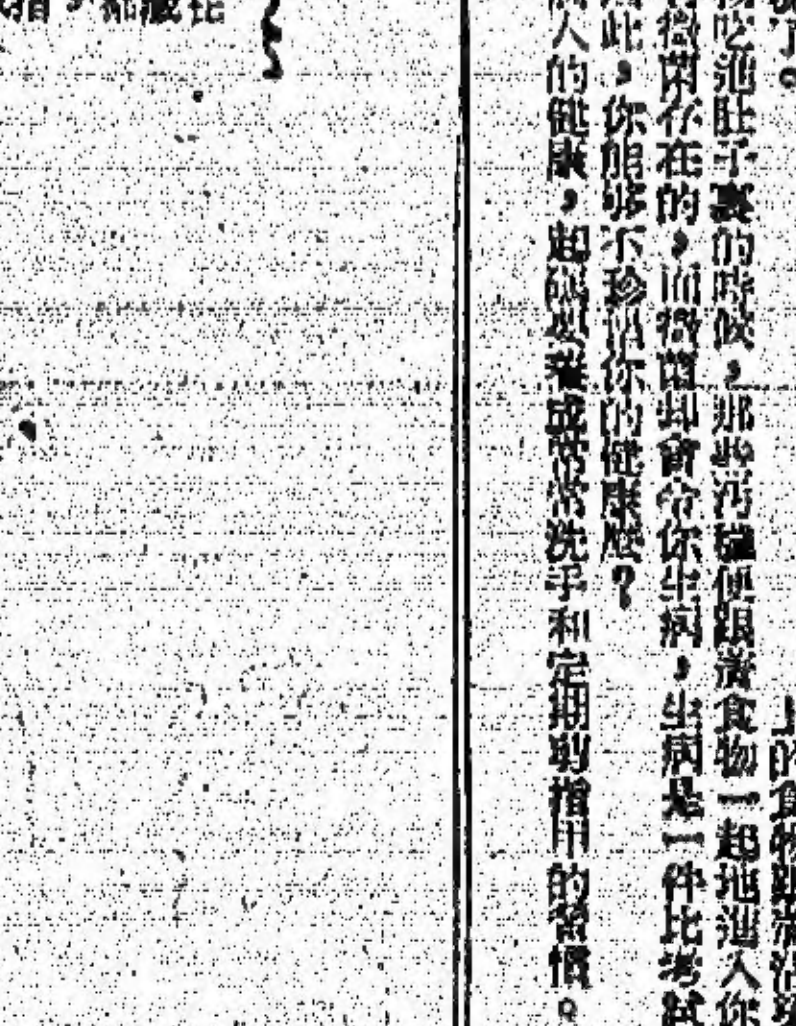 上的食物跟着沾
物吃進肚子裏的時候，那些污穢便跟着食物一起地進入你
微菌存在的，而微菌却會令你生病，生病是一件比考試
此，你能够不珍惜你的健康麽？
人的健康，起碼要養成常常洗手和定期剪指甲的習慣。